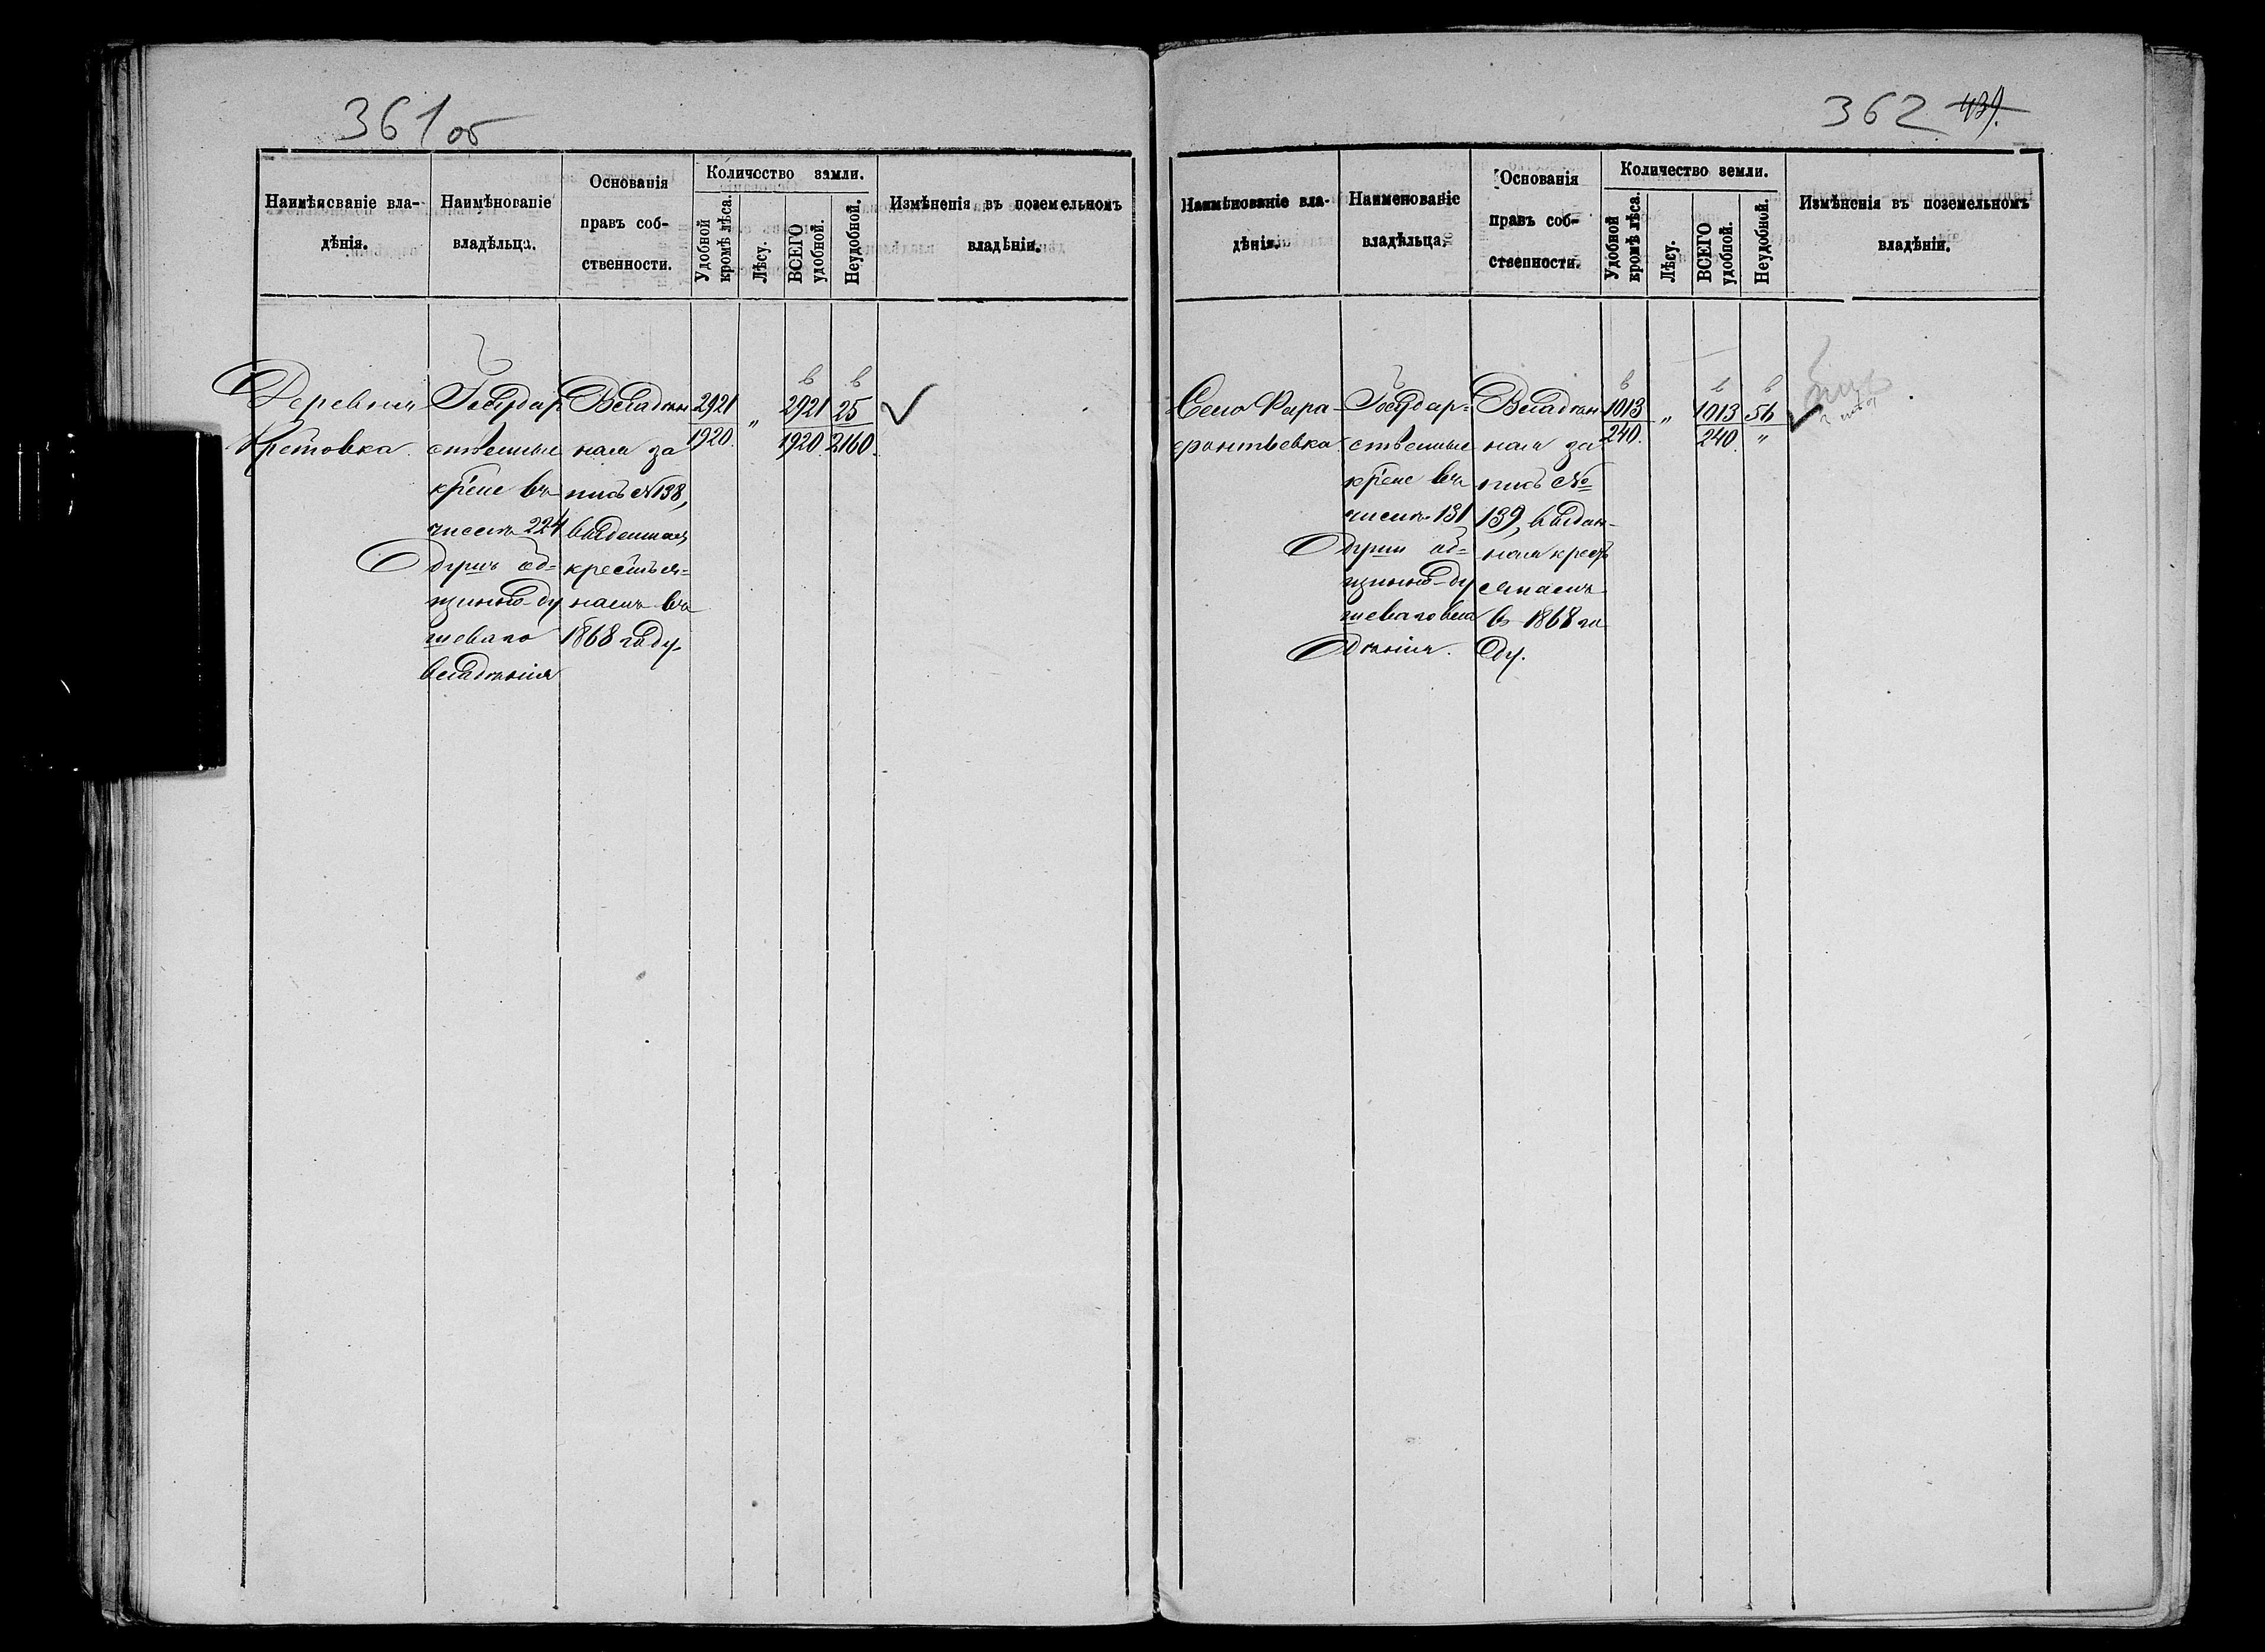 361 об
Наимѣнованіе вла-
дѣнія.
Наимѣнованіе
владѣльца.
Основанія
правъ соб-
ственности.
Количество земли.
Удобной
кромѣ лѣса.
Лѣсу.
ВСЕГО
удобной.
Неудобной.
Измѣненія въ поземельномъ
владѣніи.
Деревня
Кретовка.
Государ
ственные
кресᲂне въ
числѣ 224
душъ об-
щинно-ду
шеваго
владѣнія
Владѣн
ная за
пись №138,
выденная
крестья-
намъ въ
1868 году.
2921
1920.
„
2921
1920.
25
2160.
362 439.
Наимѣнованіе вла-
дѣнія.
Наименованіе
владѣльца.
Основанія
правъ соб-
ственности.
Количество земли.
Удобной
кромѣ лѣса.
Лѣсу.
ВСЕГО
удобной.
Неудобной.
Измѣненія въ поземельномъ
владѣніи.
Село
Государ-
ственные
кресне въ
числѣ 131
души об-
щинно-ду
шеваго вла
дѣнія.
Владѣн
ная за
пись №
139, выдан-
ная кресть
янамъ
въ 1868 го
ду.
1013
240.
„
1013
240.
56
„